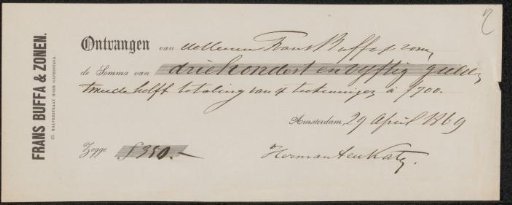 FRANS BUFFA & ZONEN.
Ontvangen van de Heeren Frans Buffa & Zonen,
de Somma van driehonderd en vyftig guld,
tweede helft betaling van 4 teekeningen à ƒ700.
Amsterdam, 29 April 1869
Zegge ƒ350.-
Herman ten Kate.